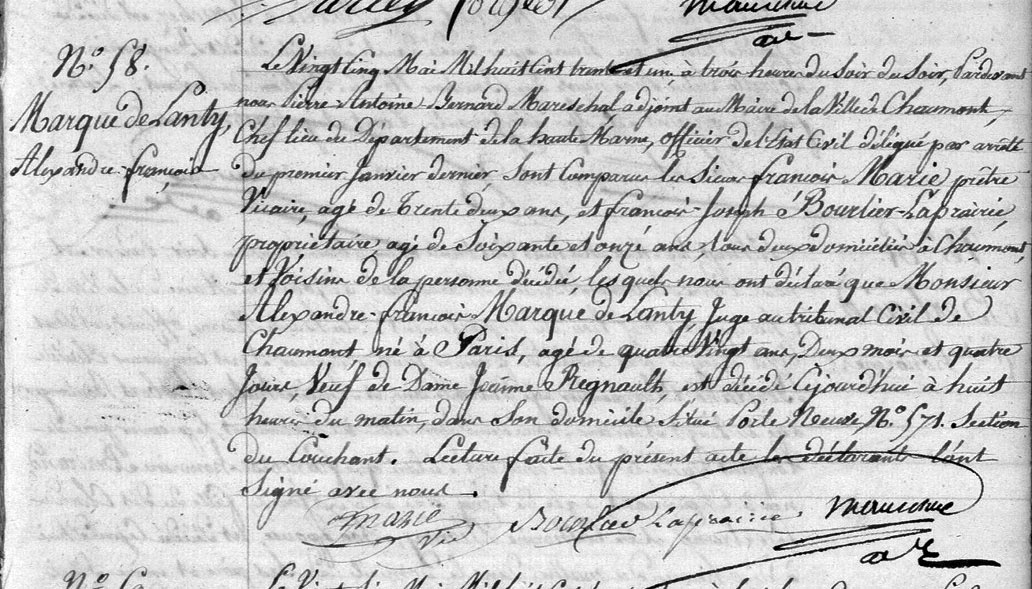 N.º 58.
Marque de Lanty,
Alexandre-françois
Le Vingt Cinq Mai Mil huit Cent trente et un à trois heures du Soir du Soir, Pardevant
nous Pierre Antoine Bernard Mareschal, adjoint au Maire de la Ville de Chaumont,
Chef lieu du Département de la haute Marne, officier de l'Etat Civil délégué par arrêté
du premier Janvier dernier Sont Comparus les Sieurs françois Marie prêtre
Vicaire, agé de Trente deux ans, et françois-Joseph Bourlier-Laprairie,
propriétaire, agé de Soixante et onze ans, tous deux domiciliés à Chaumont,
et Voisins de la personne décédée, lesquels nous ont déclaré que Monsieur
Alexandre-françois Marque de Lanty, Juge au tribunal Civil de
Chaumont né à Paris, agé de quatre Vingt ans, Deux mois et quatre
Jours, Veuf de Dame Jeanne Regnault, est décédé Cejourd'hui à huit
heures du matin, dans Son domicile Situé Porte Neuve, N.º 571. Section
du Couchant. Lecture faite du présent acte les déclarants l'ont
Signé avec nous.
Marie Bourlier Laprairie
Vic